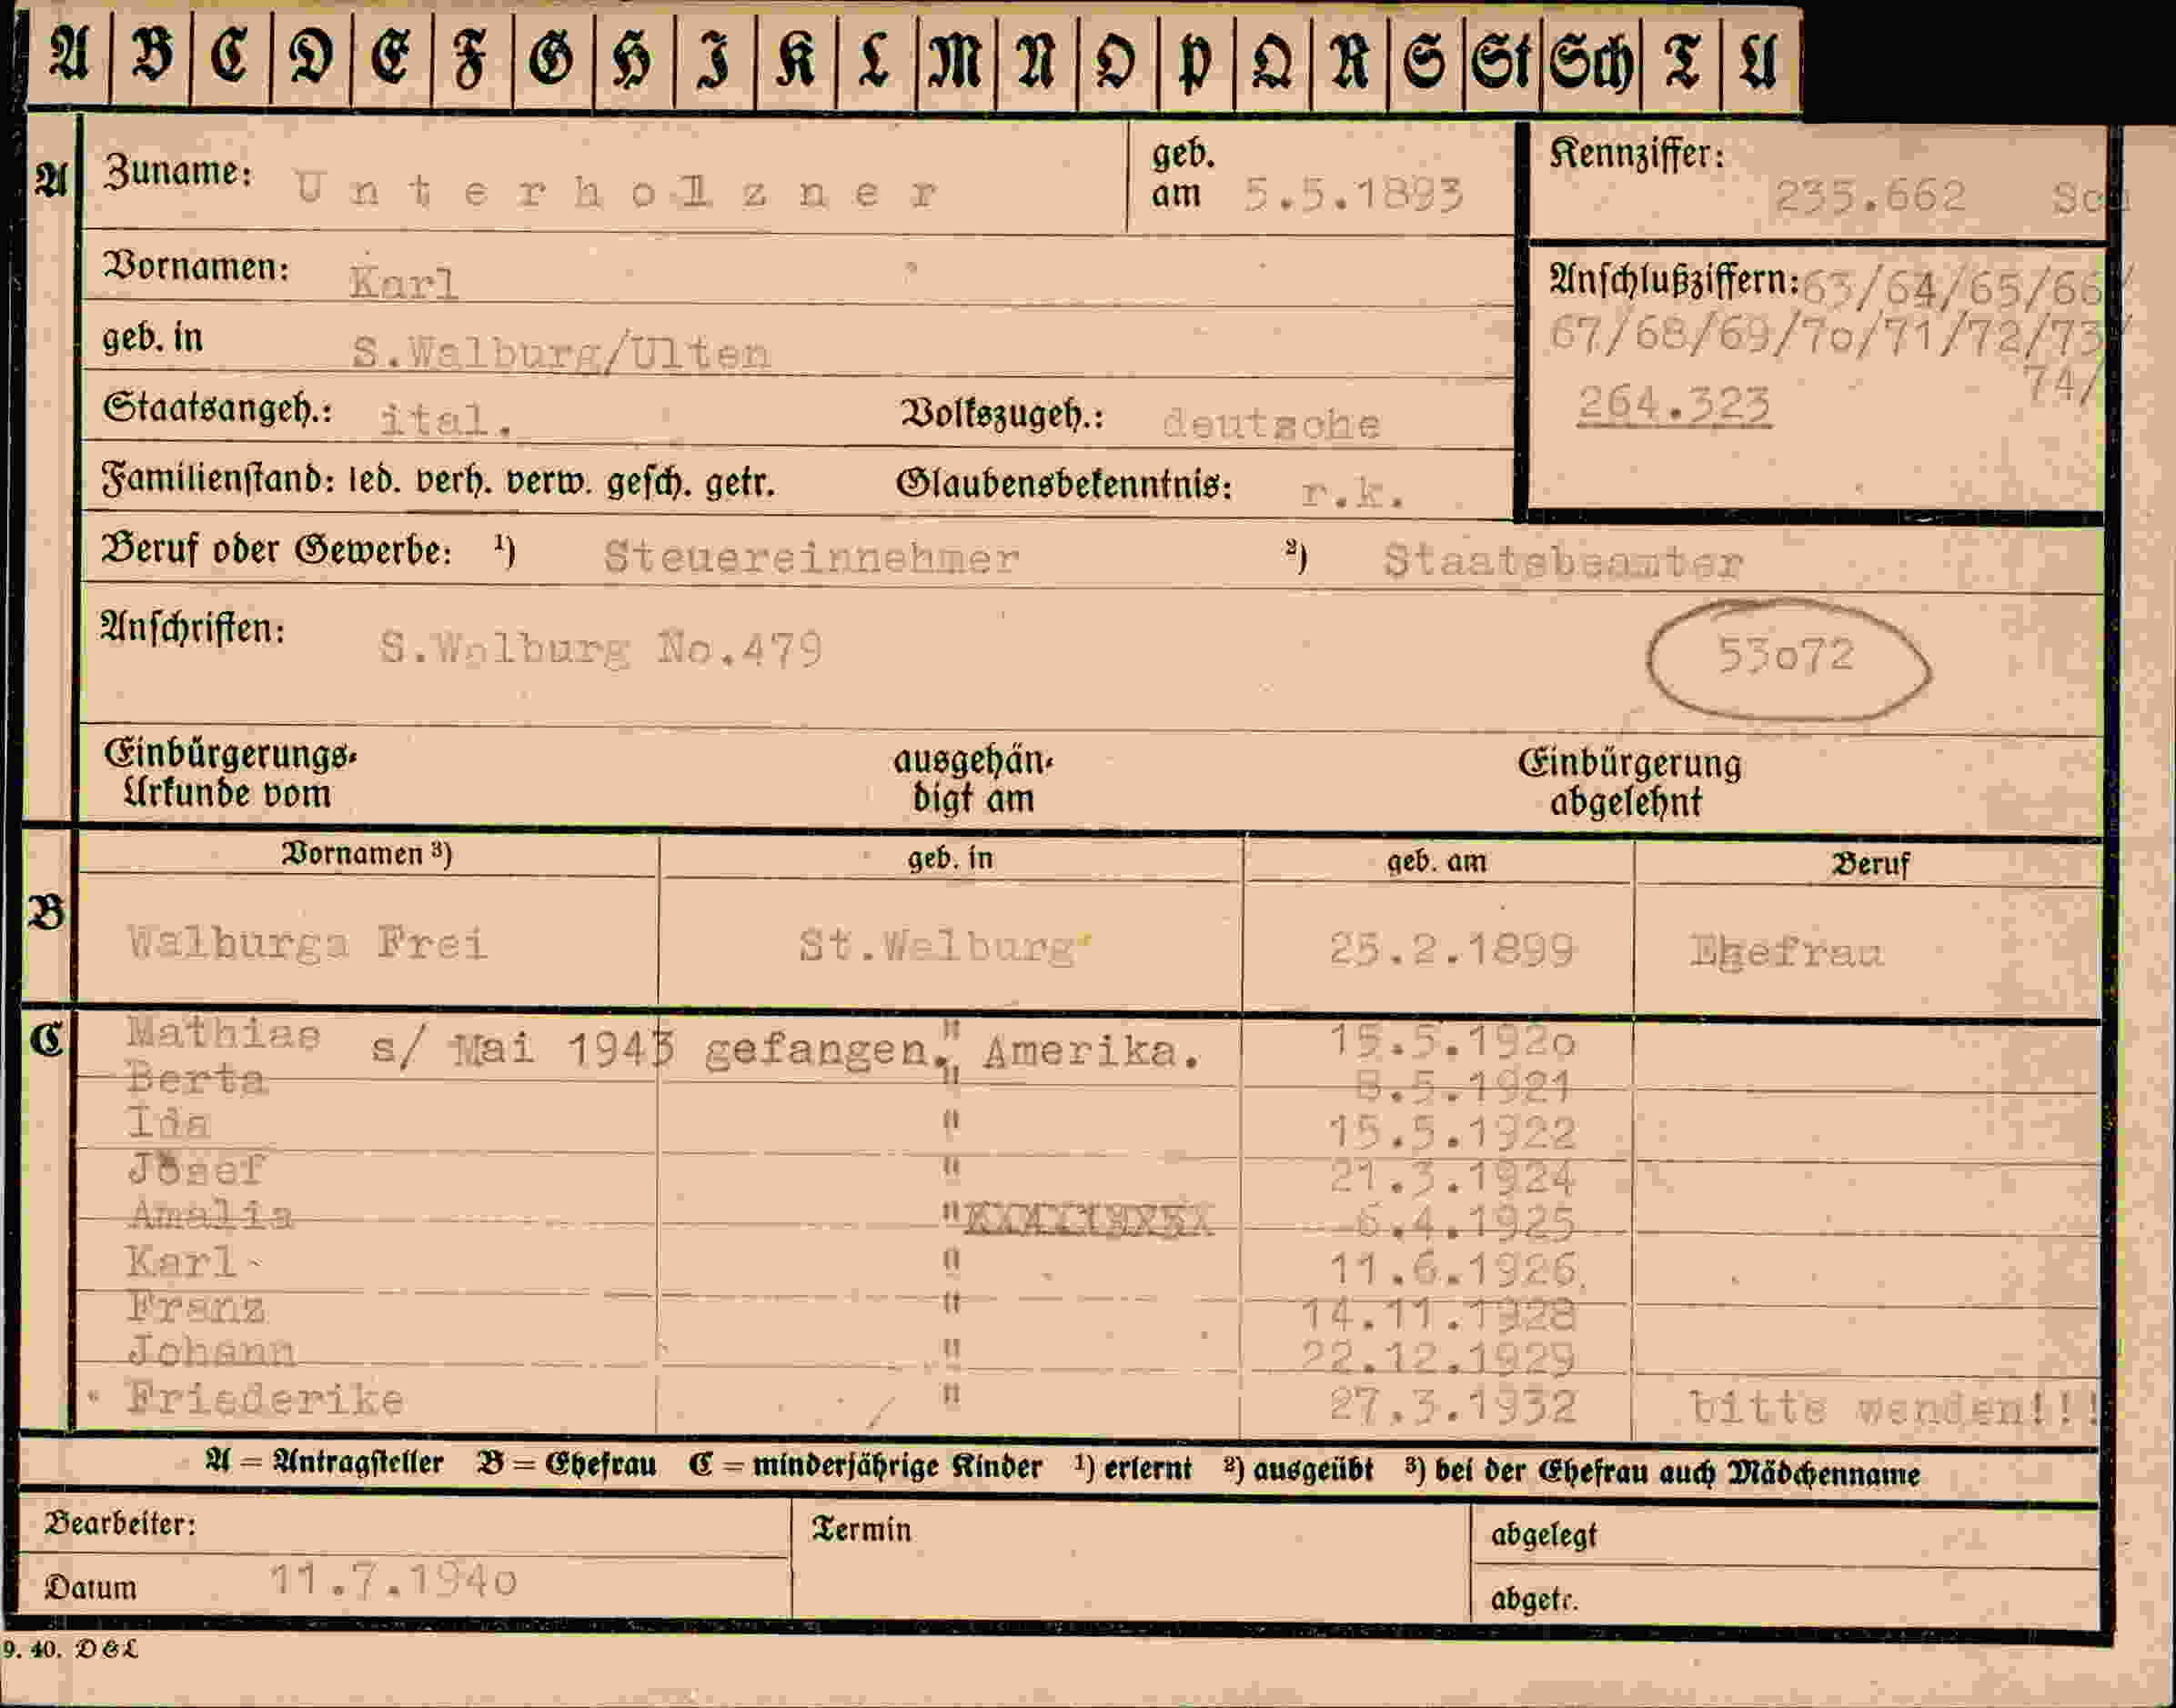 A B C D E F G H I K L M N O P Q R S St Sch T U
A Zuname: Unterholzner geb. am 5.5.1893 Kennziffer: 235.662
Vornamen: Karl Anschlußziffern: 63/64/65/66/
67/68/69/70/71/72/73/
74/
geb. in S.Walburg/Ulten
264.323
Staatsangeh.: ital. Volkszugeh.: deutsche
Familienstand: led. verh. verw. gesch. getr. Glaubensbekenntnis: r.k.
Beruf oder Gewerbe: ¹) Steuereinnehmer ²) Staatsbeamter
Anschriften: S.Walburg No.479 53o72
Einbürgerungs- ausgehän- Einbürgerung
Urkunde vom digt am abgelehnt
Vornamen ³) geb. in geb. am Beruf
B Walburga Frei St.Walburg 25.2.1899 Ehefrau
C Mathias s/ Mai 1943 gefangen. " Amerika. 15.5.192o
Berta " 8.5.1921
Ida " 15.5.1922
Josef " 21.3.1924
Amalia " 6.4.1925
Karl " 11.6.1926
Franz " 14.11.1928
Johann " 22.12.1929
Friederike " 27.3.1932 bitte wenden!!!
A = Antragsteller B = Ehefrau C = minderjährige Kinder ¹) erlernt ²) ausgeübt ³) bei der Ehefrau auch Mädchenname
Bearbeiter: Termin abgelegt
Datum 11.7.194o abgetr.
9. 40. DGL